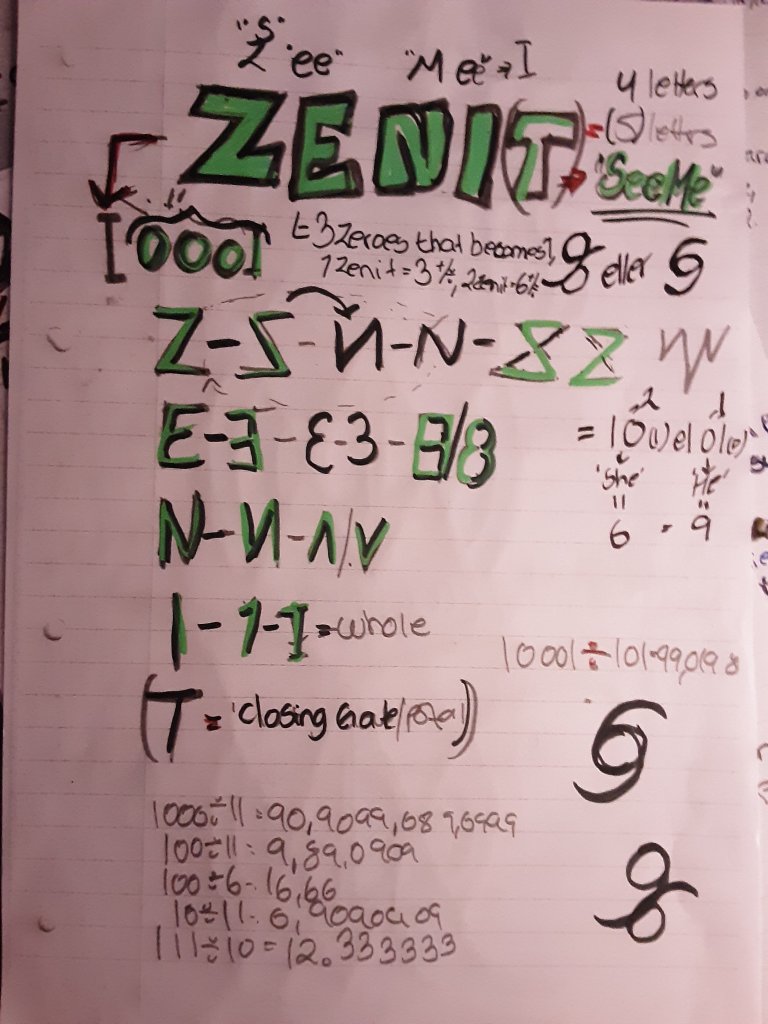 "S"
"Z "ee" "Mee" → I
4 letters
ZENI(T) = (5) letters
→ "SeeMe"
I000I
t=3 zeroes that becomes 1,
1 Zenit = 3 , 2 Zenit = 6 eller
Z-S-И-N-S Z
E-Ǝ-Ɛ-3-8/8
= 10(1) e 101(0)
2 1
'She' 'He'
" "
6 9
N-И-Λ/V
I-1-I = whole
10001÷101=99,0198
(T = 'closing Gate/
1000÷11=90,9099,689,6999
100÷11= 9,89,0909
100÷6= 16,66
10÷11= 0,9090909
111÷10=12.333333